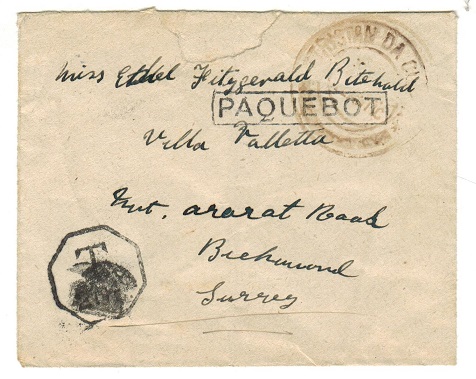 TRISTAN DA CU
Miss Ethel Fitzgerald
PAQUEBOT
Villa Valletta
Mt. ararat Road
Richmond
Surrey
T